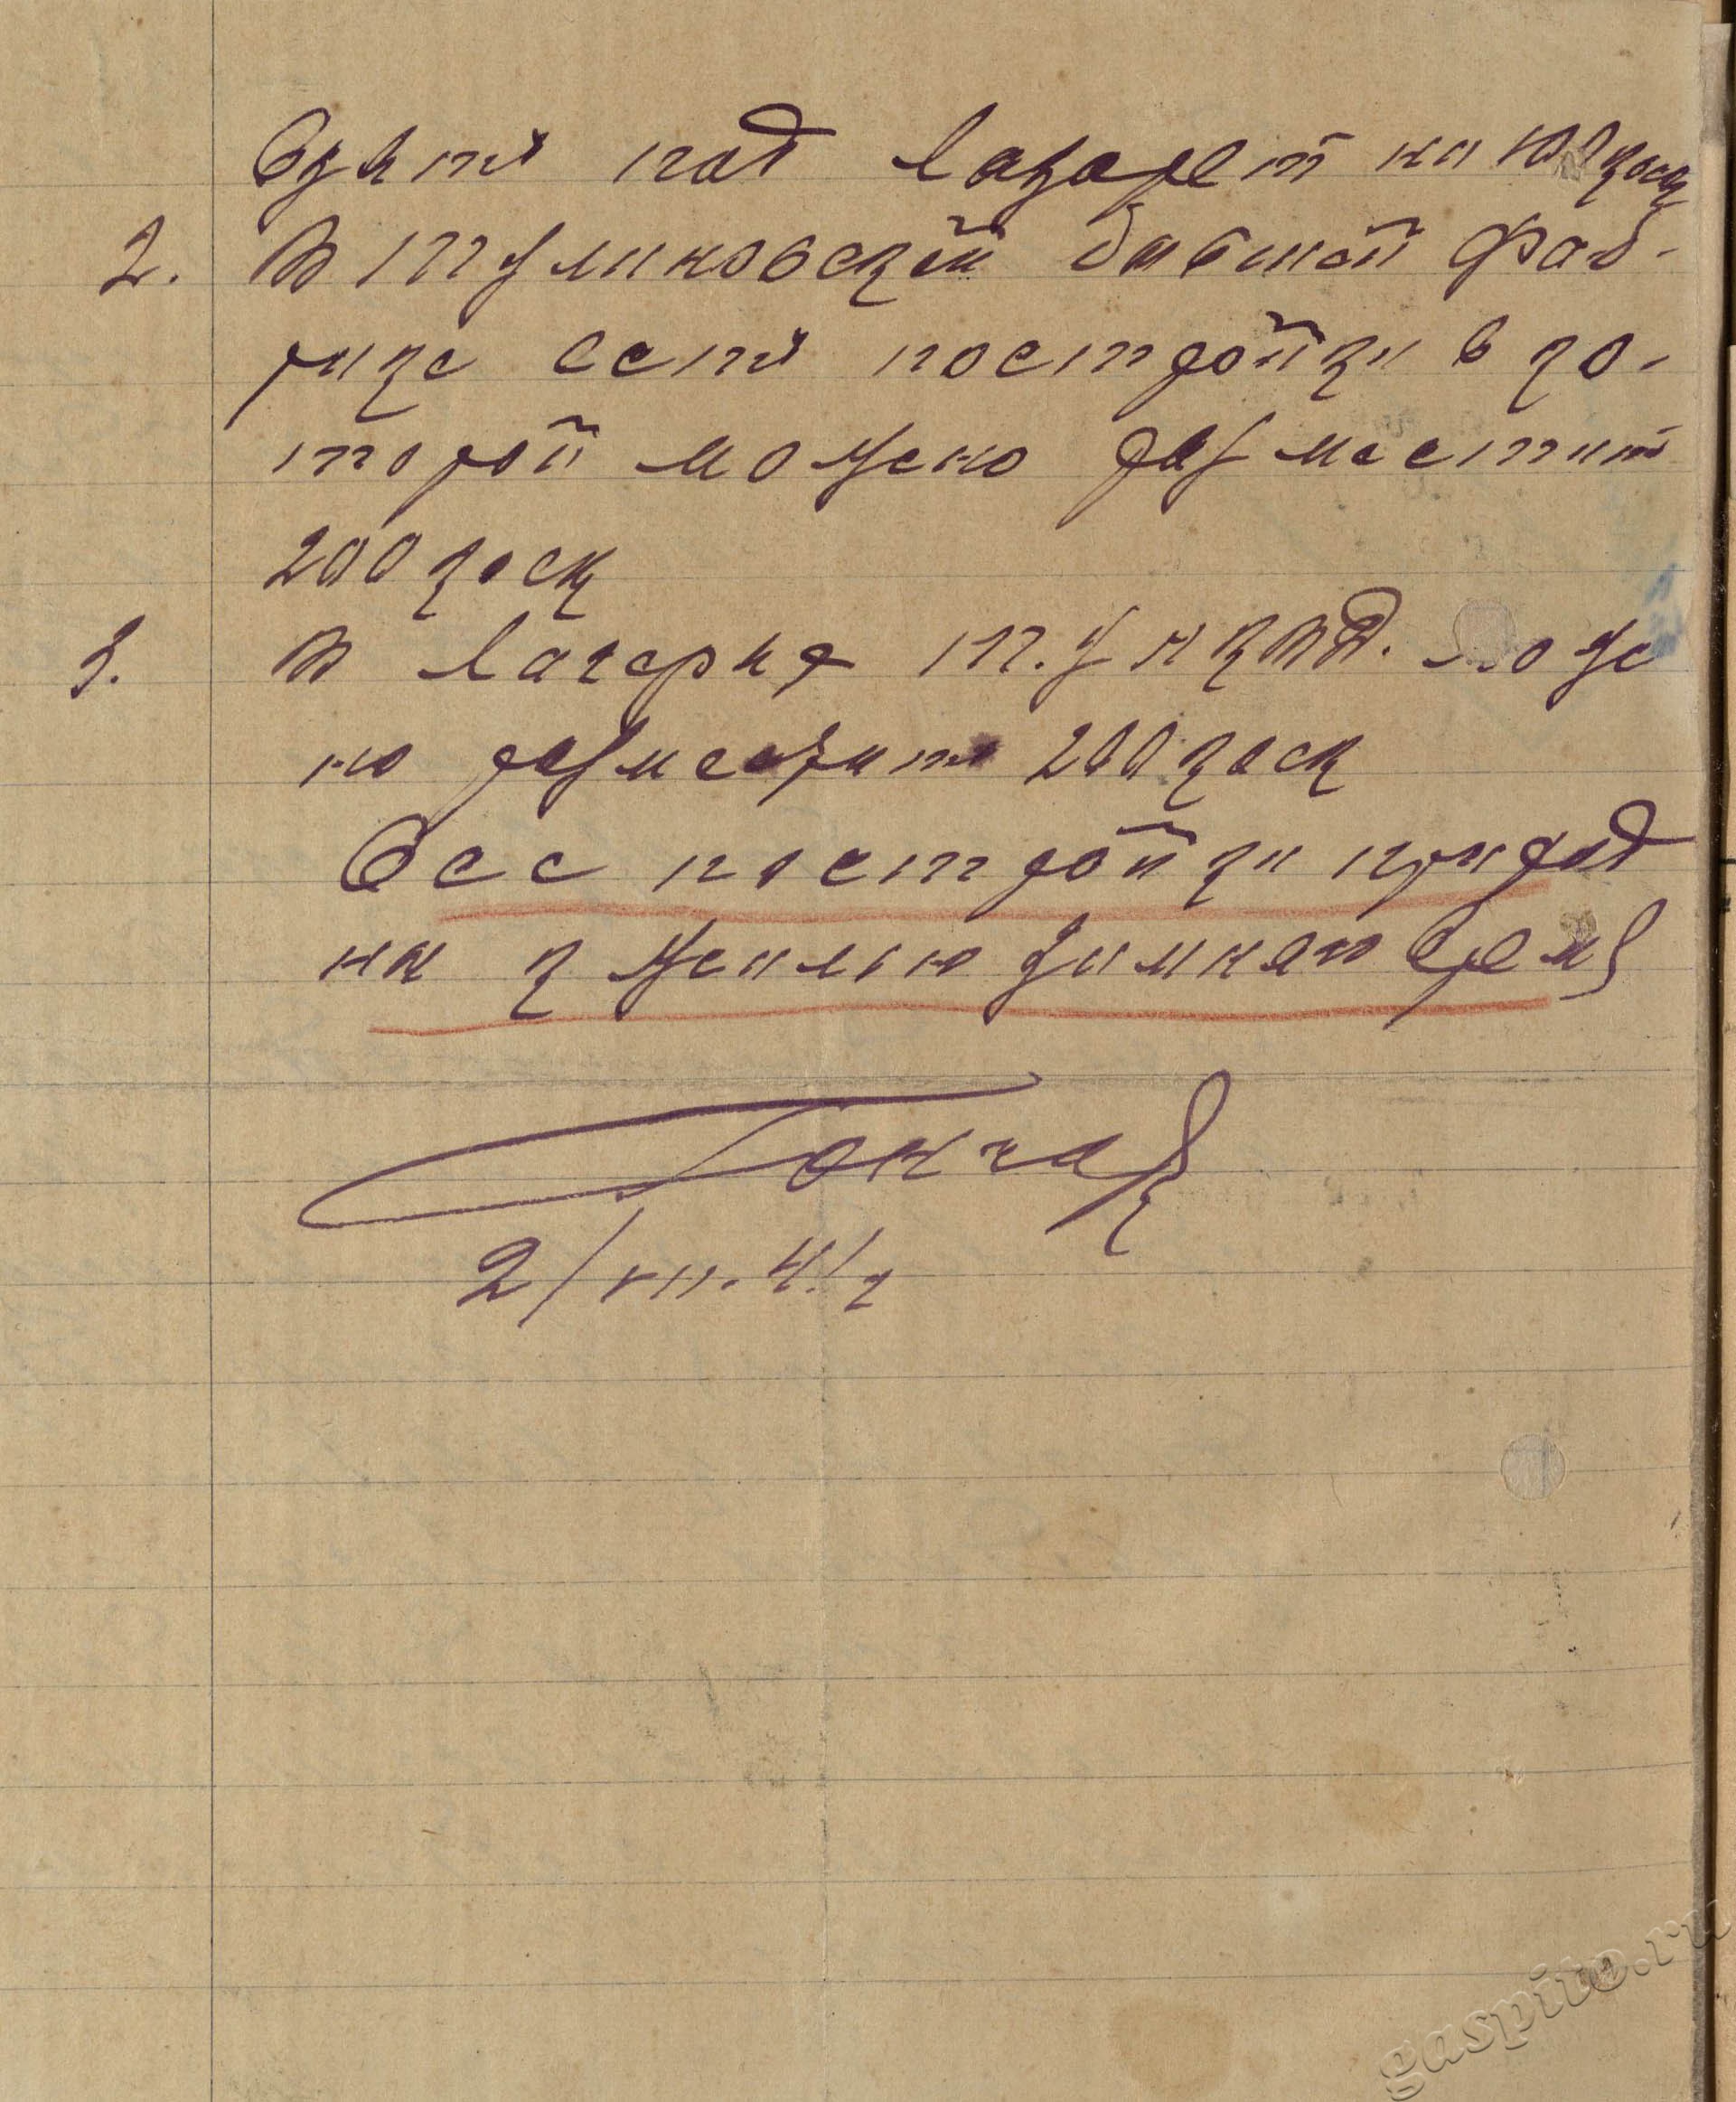 взять под лазарет на 100 коек
2. В Трулиновской бывшей фаб-
рике есть постройки в ко-
торой можно разместить
200 коек
3. В лагерях т.у НКВД. може
но разместить 200 коек
Все постройки пригод
ны к жилью зимнее время
Гончар
2/VII.41г
gaspito.ru